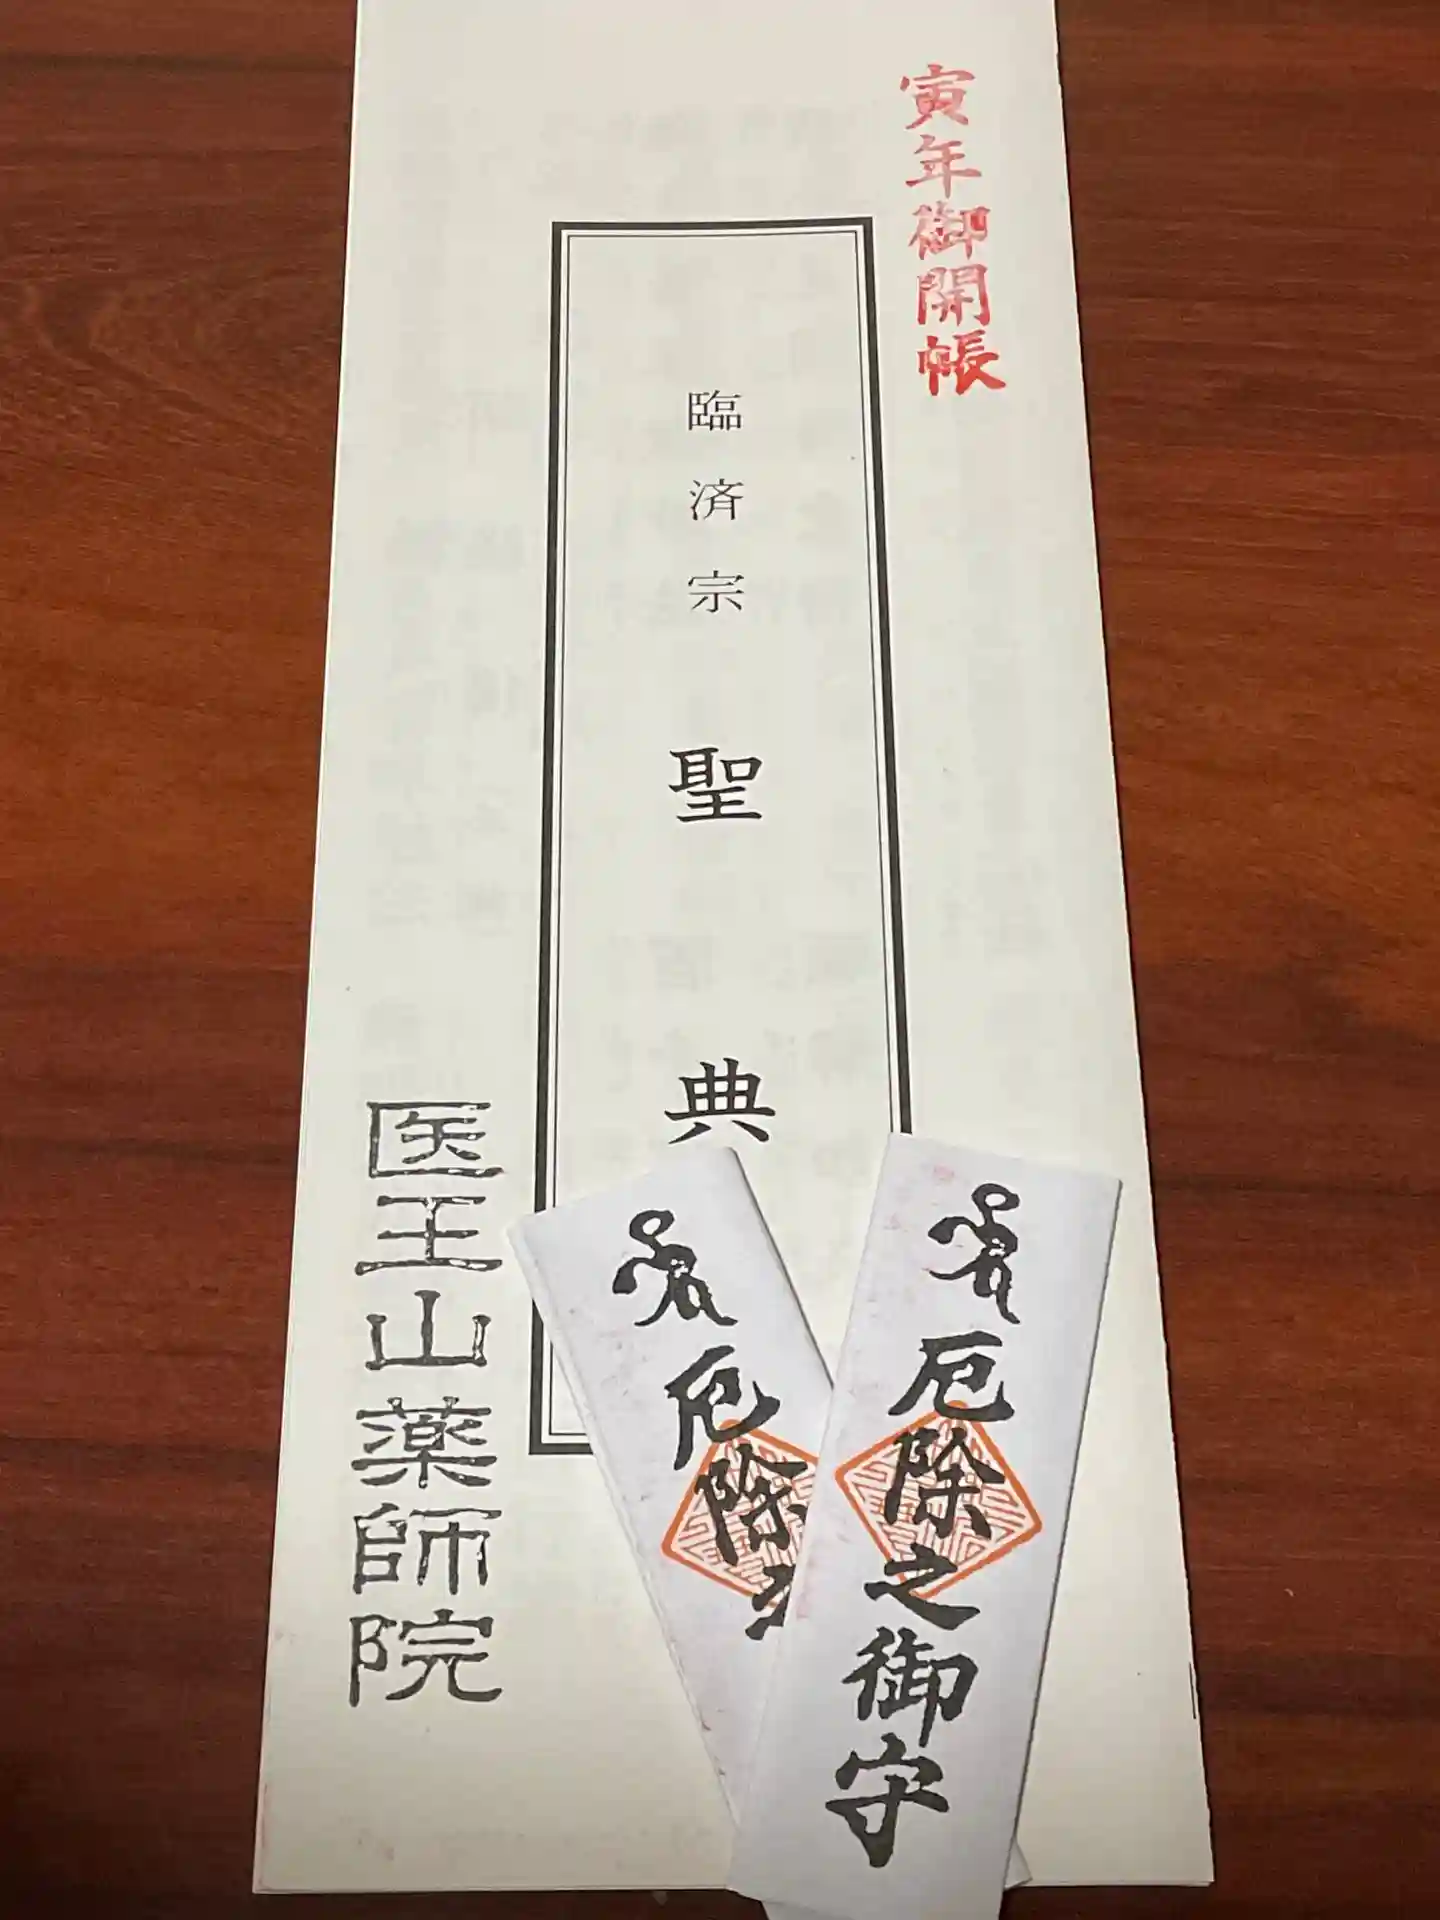 寅年御開帳
臨済宗 聖典
医王山薬師院
厄除之御守
厄除